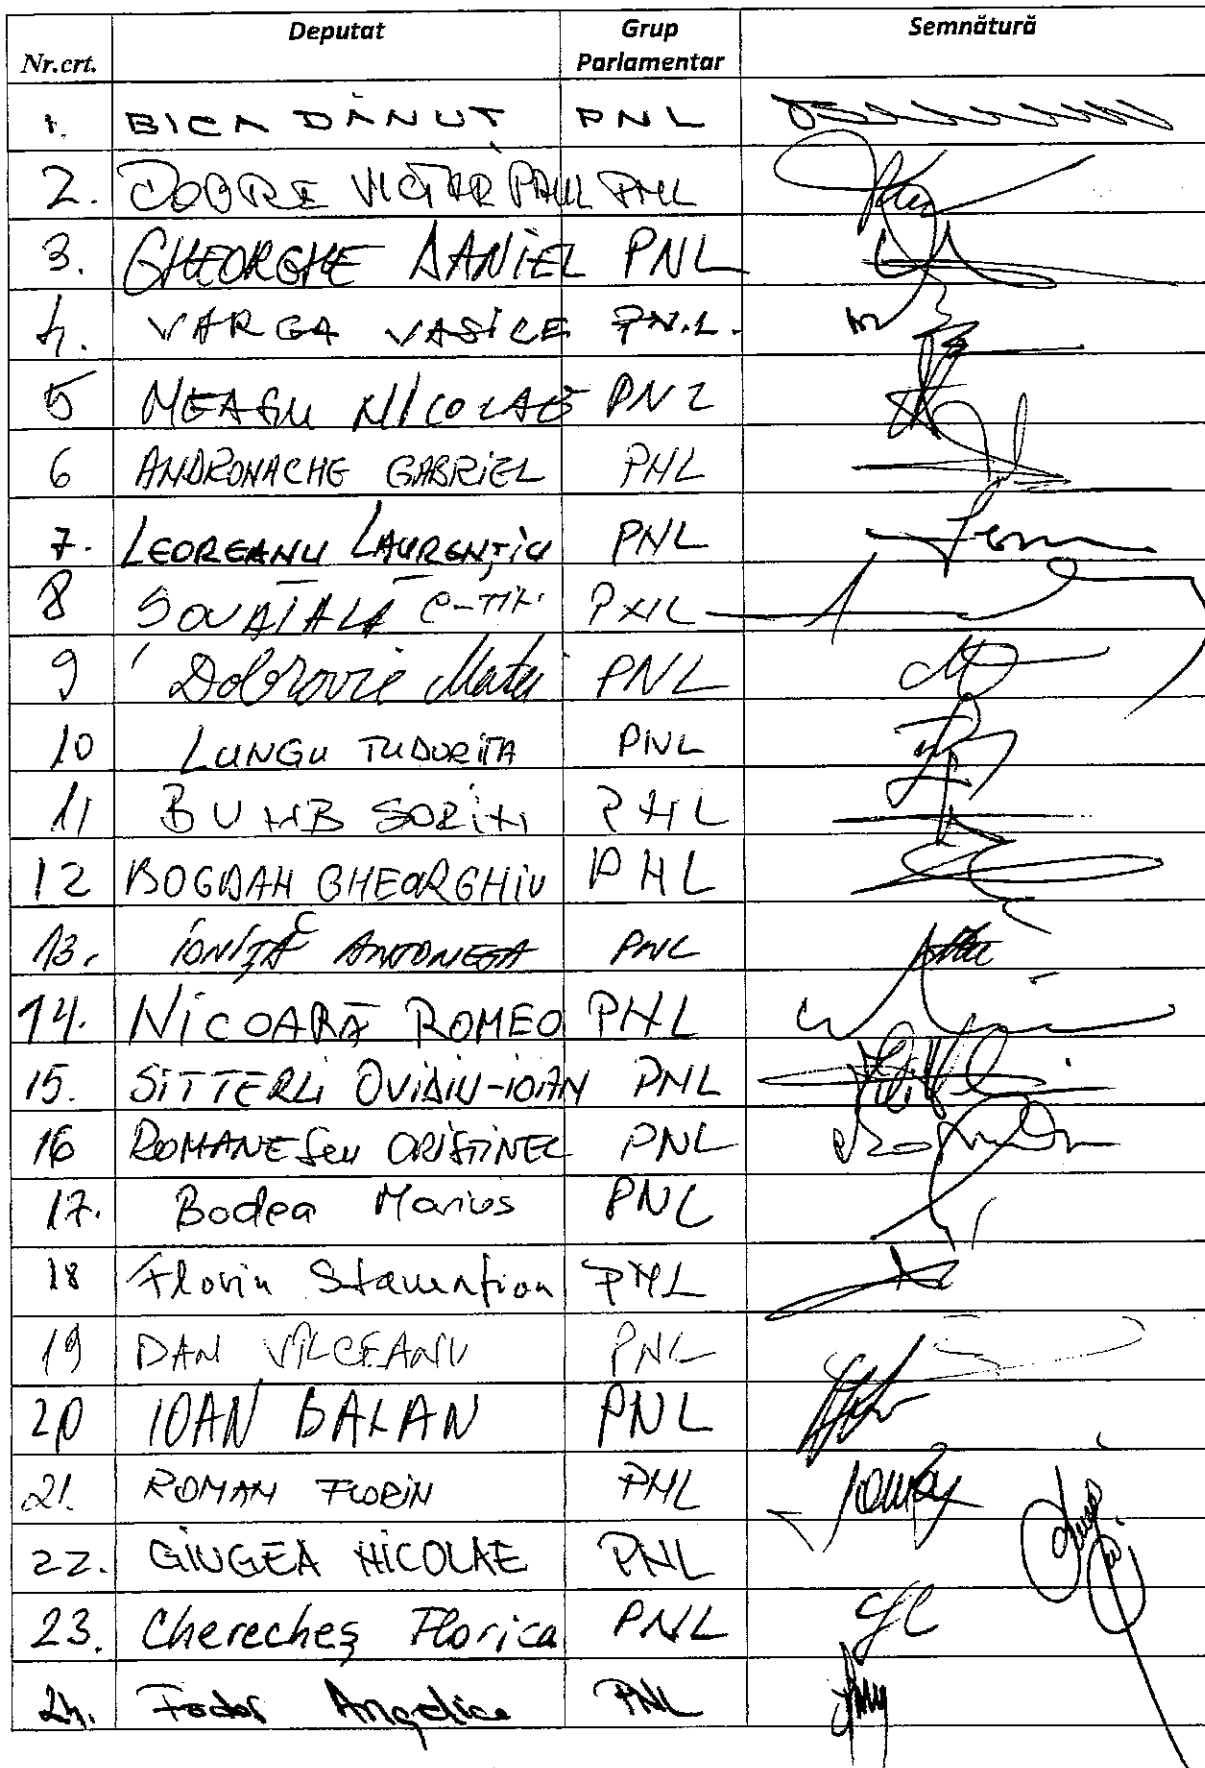 Nr.crt. Deputat Grup Parlamentar Semnătură
1. BICA DĂNUȚ PNL
2. DOBRE VICTOR PAUL PNL
3. GHEORGHE DANIEL PNL
4. VARGA VASILE P.N.L.
5 NEAGU NICOLAE PNL
6 ANDRONACHE GABRIEL PNL
7. LEOREANU LAURENȚIU PNL
8 ȘOVĂIALĂ PNL
9 Dobrovie Matei PNL
10 LUNGU TUDORIȚA PNL
11 BUMB SORIN PNL
12 BOGDAN GHEORGHIU PNL
13. IONIȚĂ ANTONETA PNL
14. NICOARĂ ROMEO PNL
15. SITTERLI OVIDIU-IOAN PNL
16 ROMANESCU CRISTINEL PNL
17. Bodea Marius PNL
18 Florin PNL
19 DAN VÎLCEANU PNL
20 IOAN BALAN PNL
21. ROMAN FLORIN PNL
22. GIUGEA NICOLAE PNL
23. Cherecheș Florica PNL
24. Fodor Angelica PNL